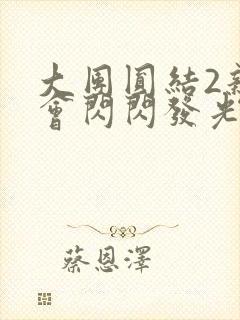 大團圓結2新
會閃閃發光
蔡恩澤